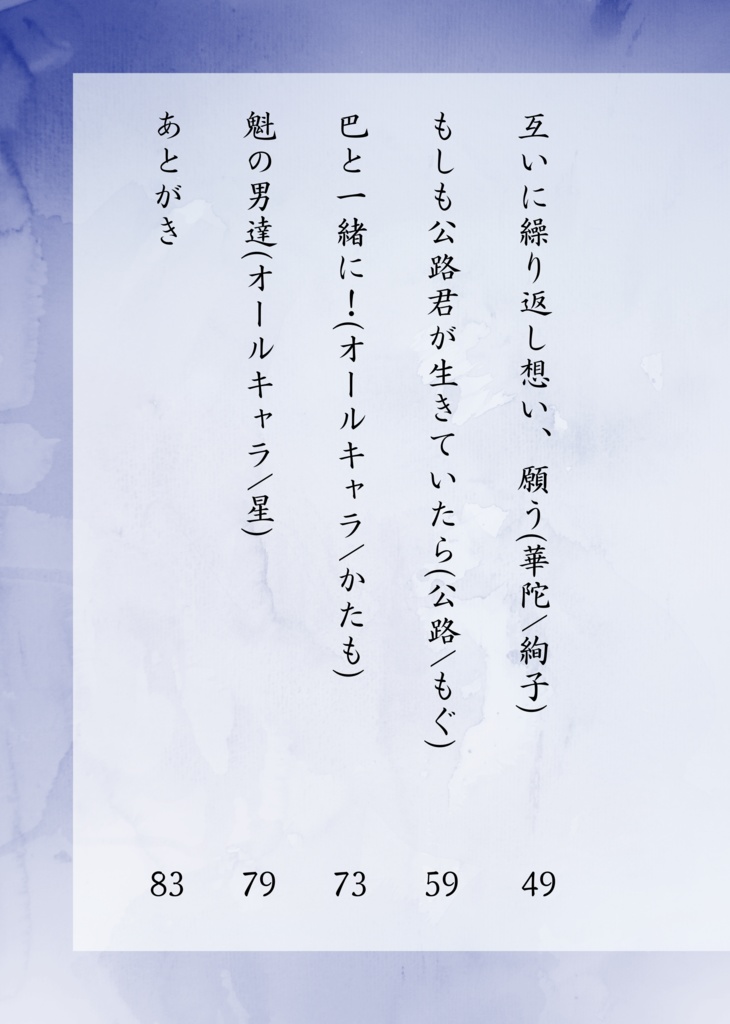 互いに繰り返し想い、願う(華陀／絢子) 49
もしも公路君が生きていたら(公路／もぐ) 59
巴と一緒に！(オールキャラ／かたも) 73
魁の男達(オールキャラ／星) 79
あとがき 83